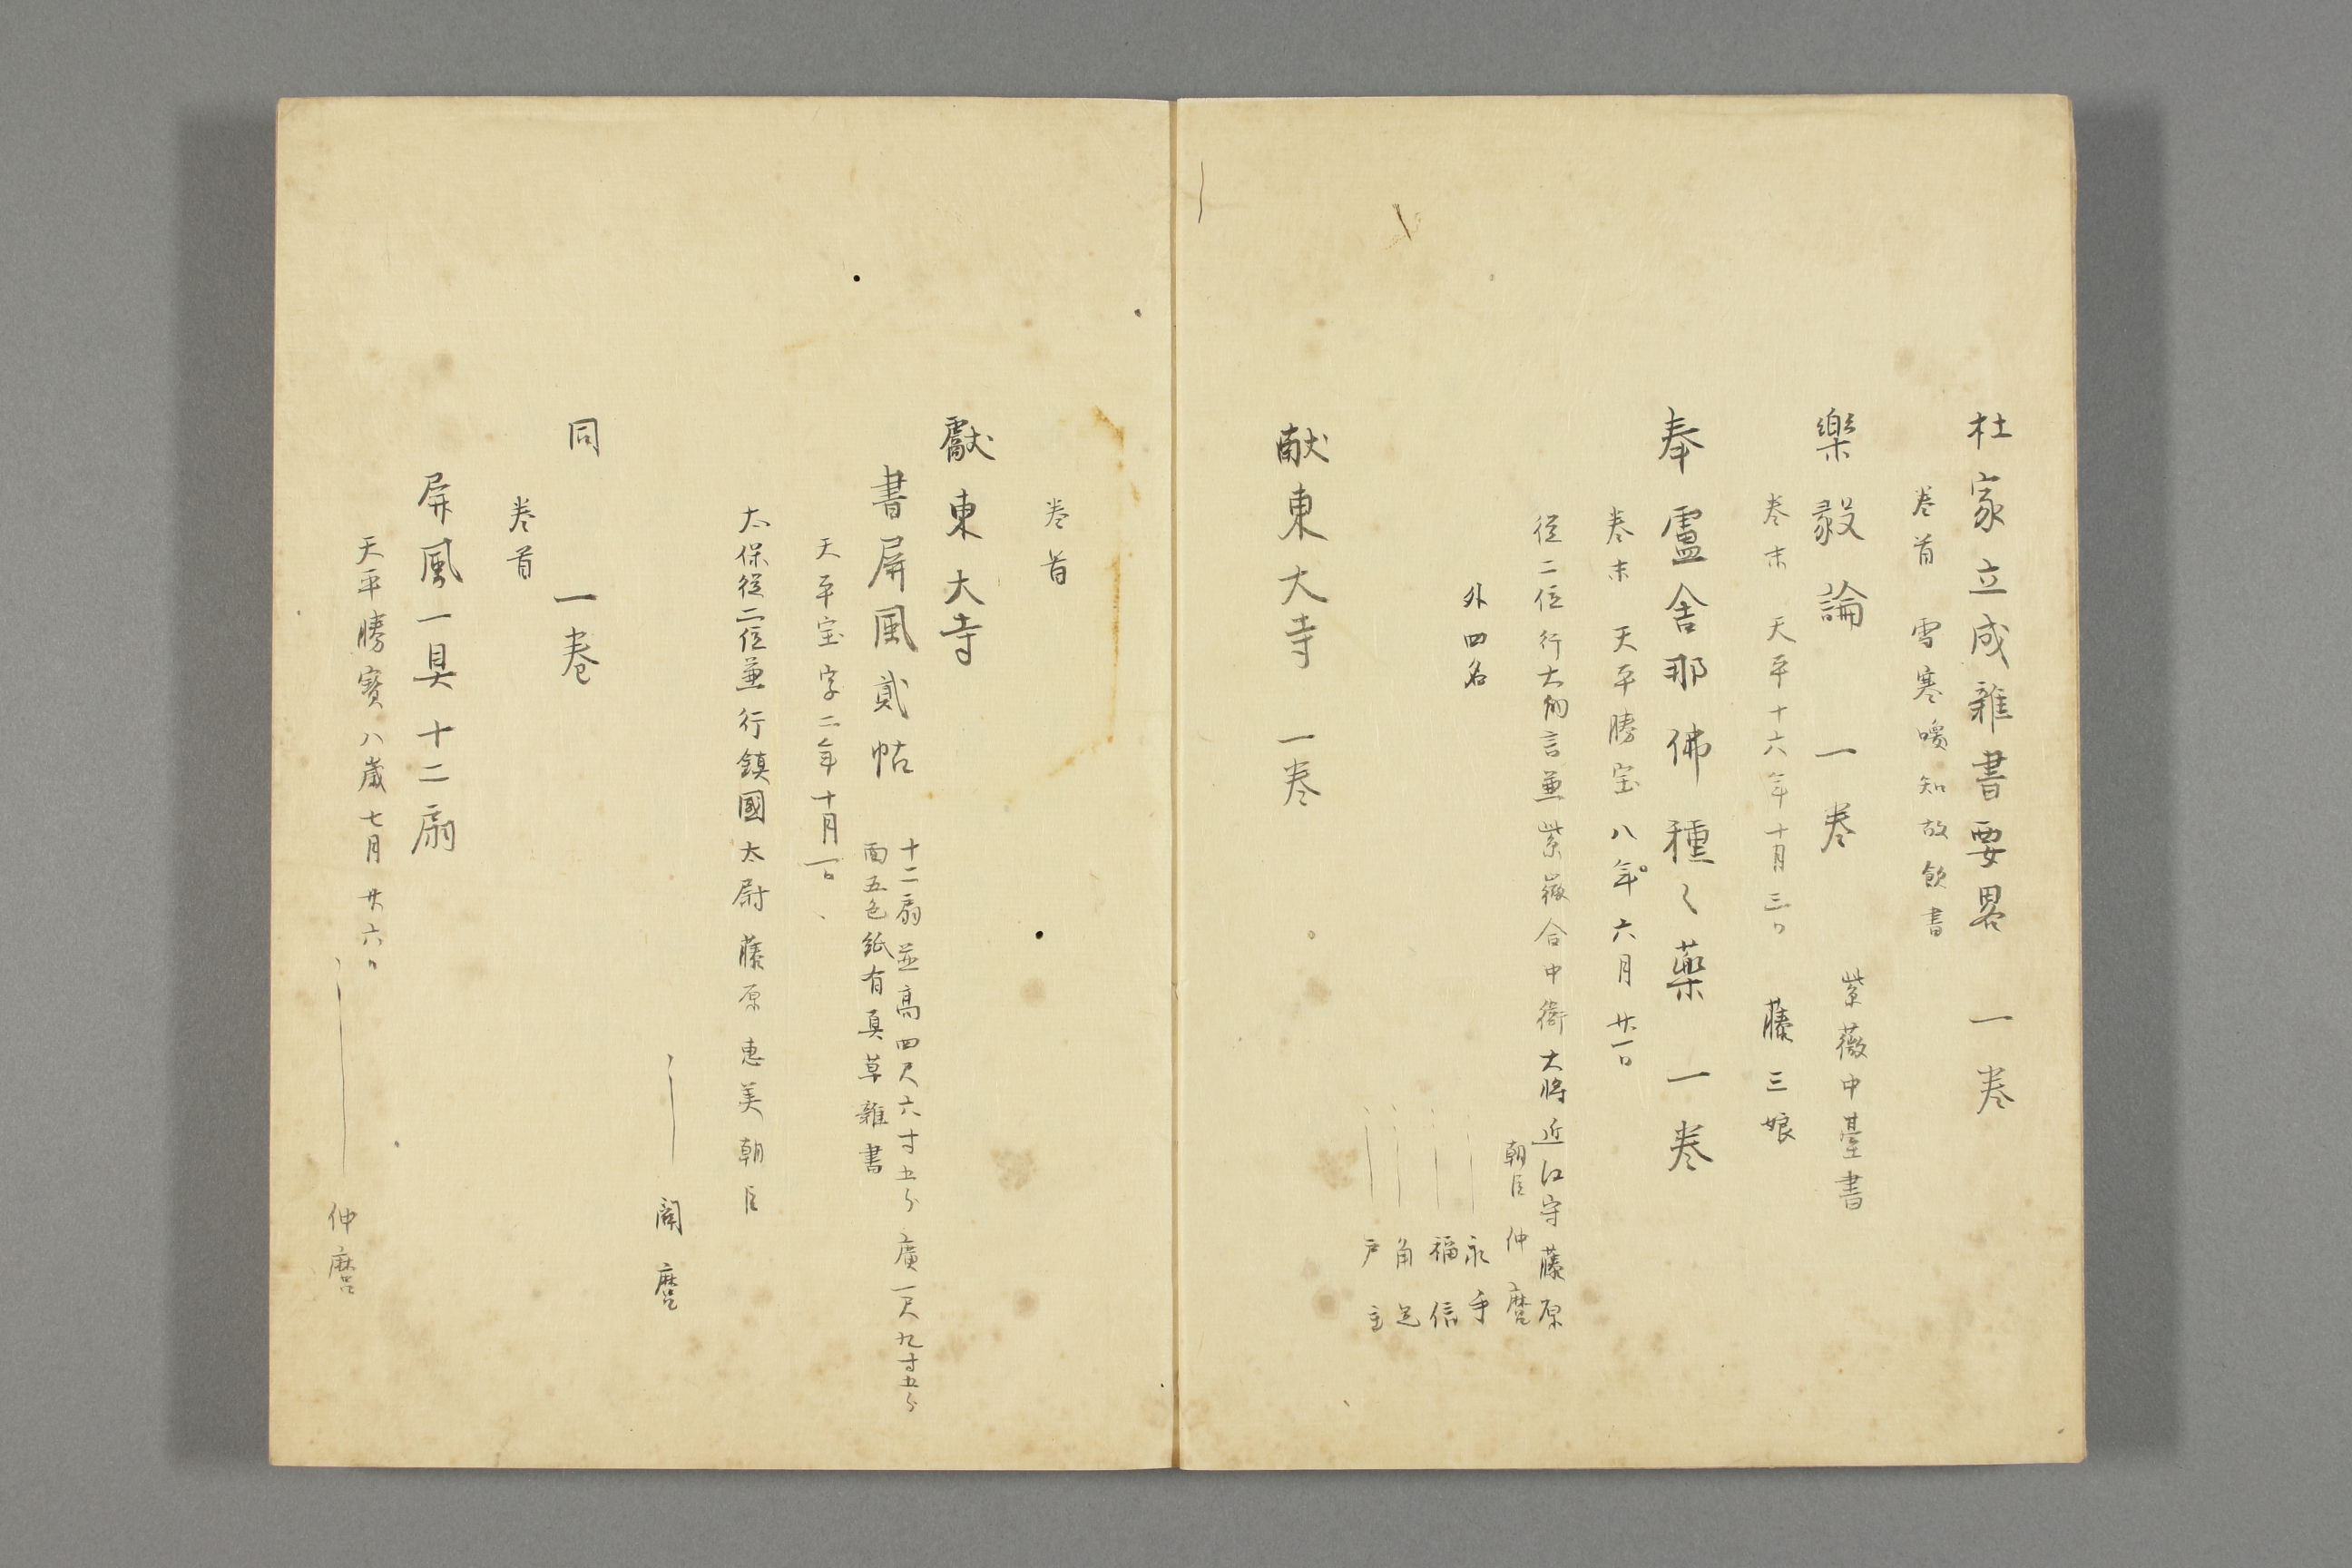 杜家立成雜書要畧　一巻
巻首　雪寒喚知故飲書
樂毅論　一巻　紫薇中臺書
巻末　天平十六年十月三日　藤三娘
奉盧舎那佛種〻薬　一巻
巻末　天平勝宝八年六月廿一日
従二位行大納言兼紫薇令中衛大将近江守藤原
朝臣仲麿
外四名　永手
福信
角足
戸主
献東大寺　一巻
巻首
獻東大寺
書屏風貳帖　十二扇並高四尺六寸五分　廣一尺九寸五分
面五色紙有真草雜書
天平宝字二年十月一日
太保従二位兼行鎮國太尉藤原恵美朝臣
同　一巻
巻首
屏風一具十二扇
天平勝寶八歳七月廿六日
仲麿